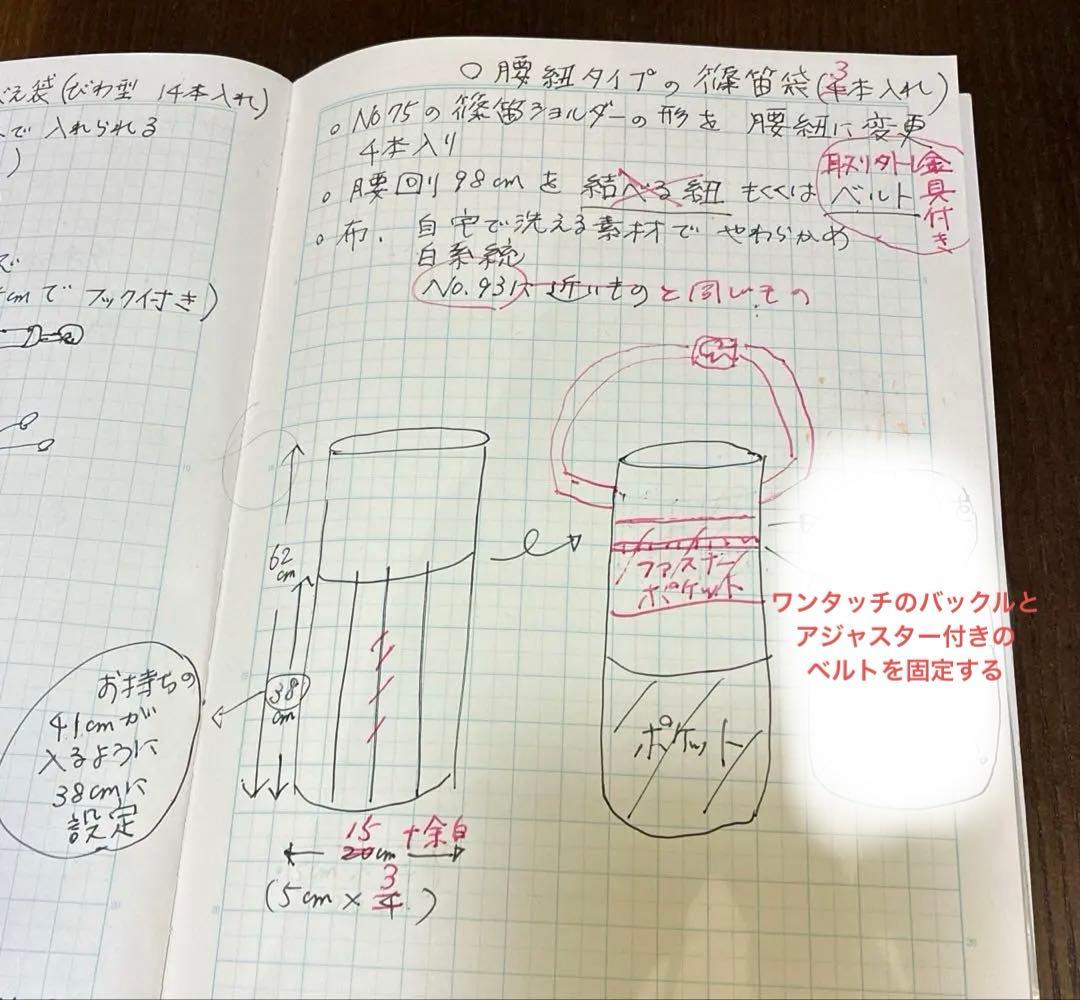 え袋(びわ型 14本入れ)
で 入れられる
)
で
cmで フック付き)
○ 腰紐タイプの篠笛袋(3本入れ)
○ No75の篠笛ショルダーの形を 腰紐に変更
4本入り
○ 腰回り98cmを 結べる紐 もくくは ベルト
金具付き
○ 布. 自宅で洗える素材で やわらかめ
白系統
No.93に近いものと同じもの
62
cm
38
cm
お持ちの
41cmが
入るように
38cmに
設定
15
20cm
+余白
(5cm×3)
4
ファスナー
ポケット
ポケット
ワンタッチのバックルと
アジャスター付きの
ベルトを固定する